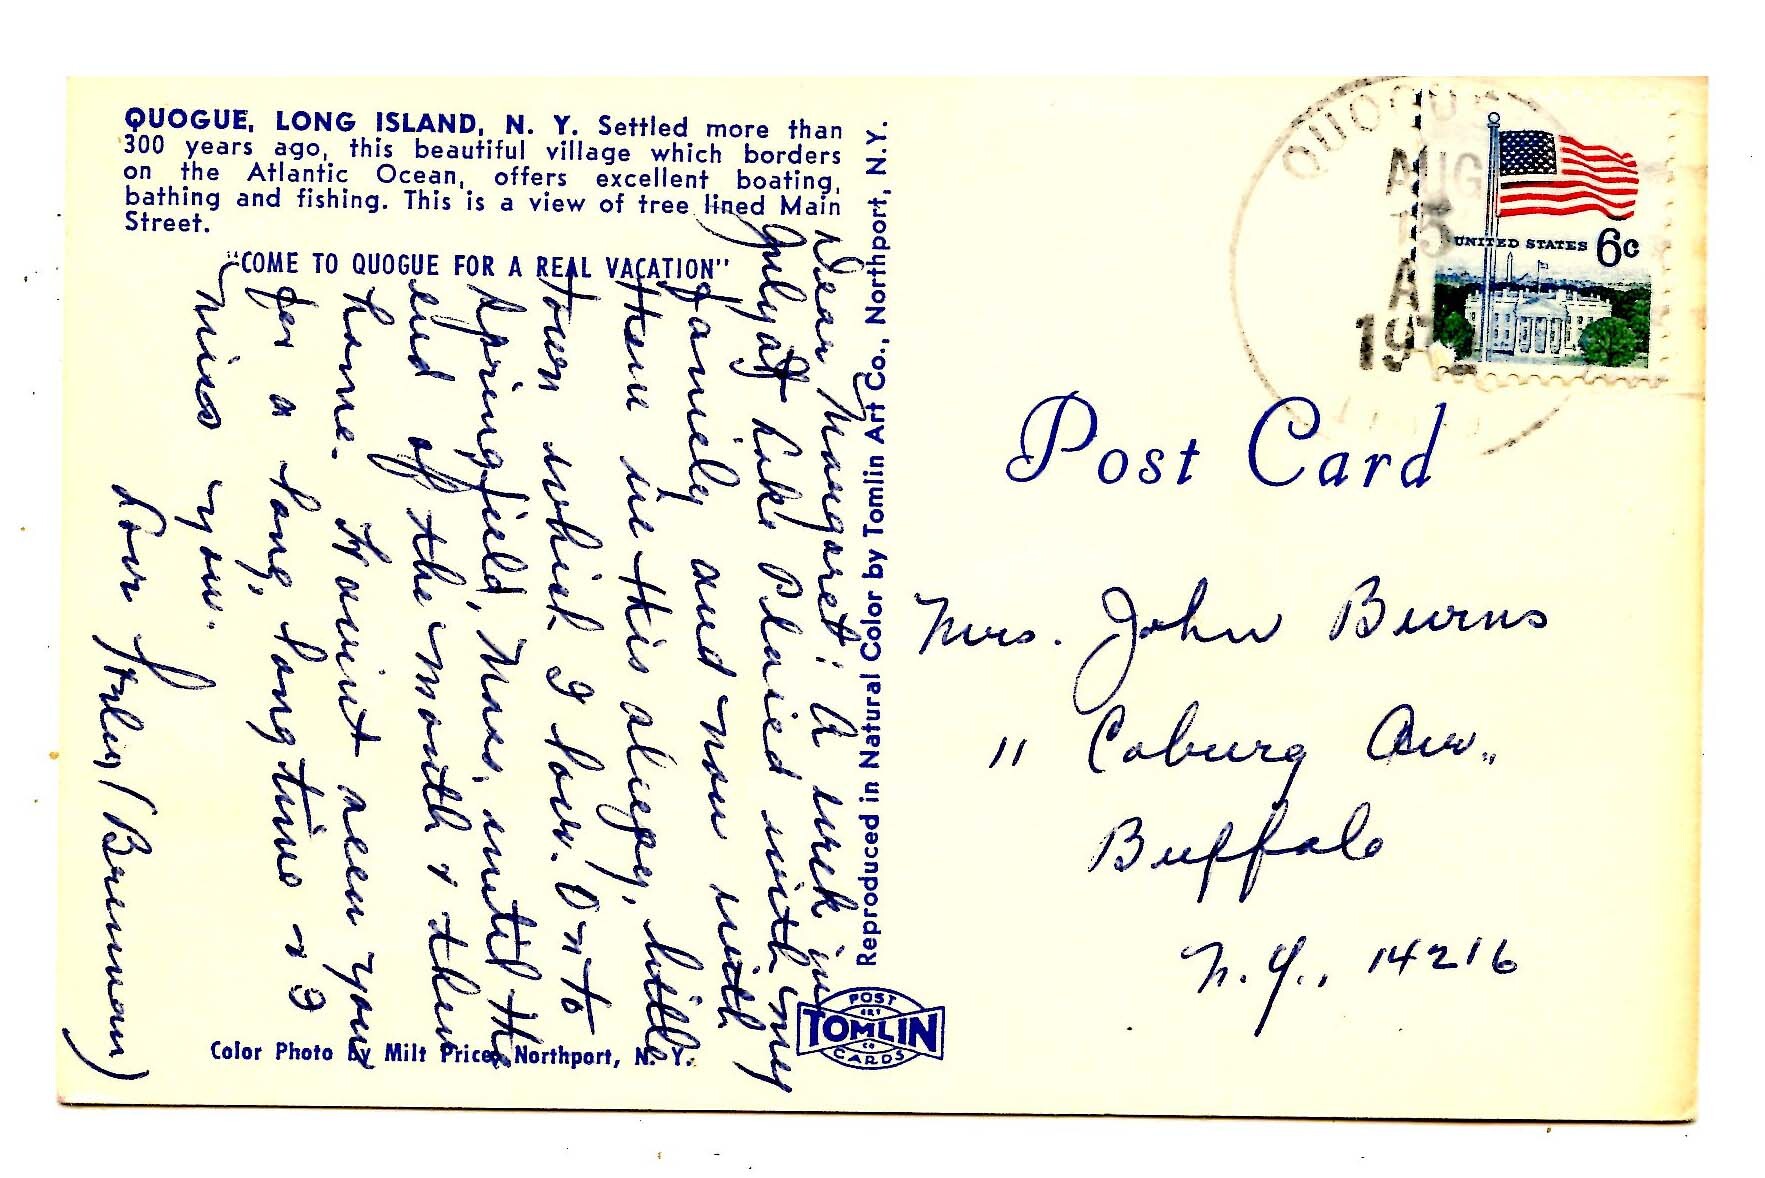 QUOGUE, LONG ISLAND, N. Y. Settled more than
300 years ago, this beautiful village which borders
on the Atlantic Ocean, offers excellent boating,
bathing and fishing. This is a view of tree lined Main
Street.
"COME TO QUOGUE FOR A REAL VACATION"
Dear Margaret: A week in
July at Lake Placid with my
family and now with
them in this sleepy, little
town which I love. On to
Springfield, Mass. until the
end of the month & then
home. Haven't seen you
for a long, long time & I
miss you.
Love
(Brennan)
Color Photo by Milt Price, Northport, N. Y.
Reproduced in Natural Color by Tomlin Art Co., Northport, N.Y.
POST
ART
TOMLIN
CO
CARDS
QUOGUE
AUG
15
A
197
UNITED STATES 6c
Post Card
Mrs. John Burns
11 Coburg Ave.,
Buffalo
N.Y., 14216